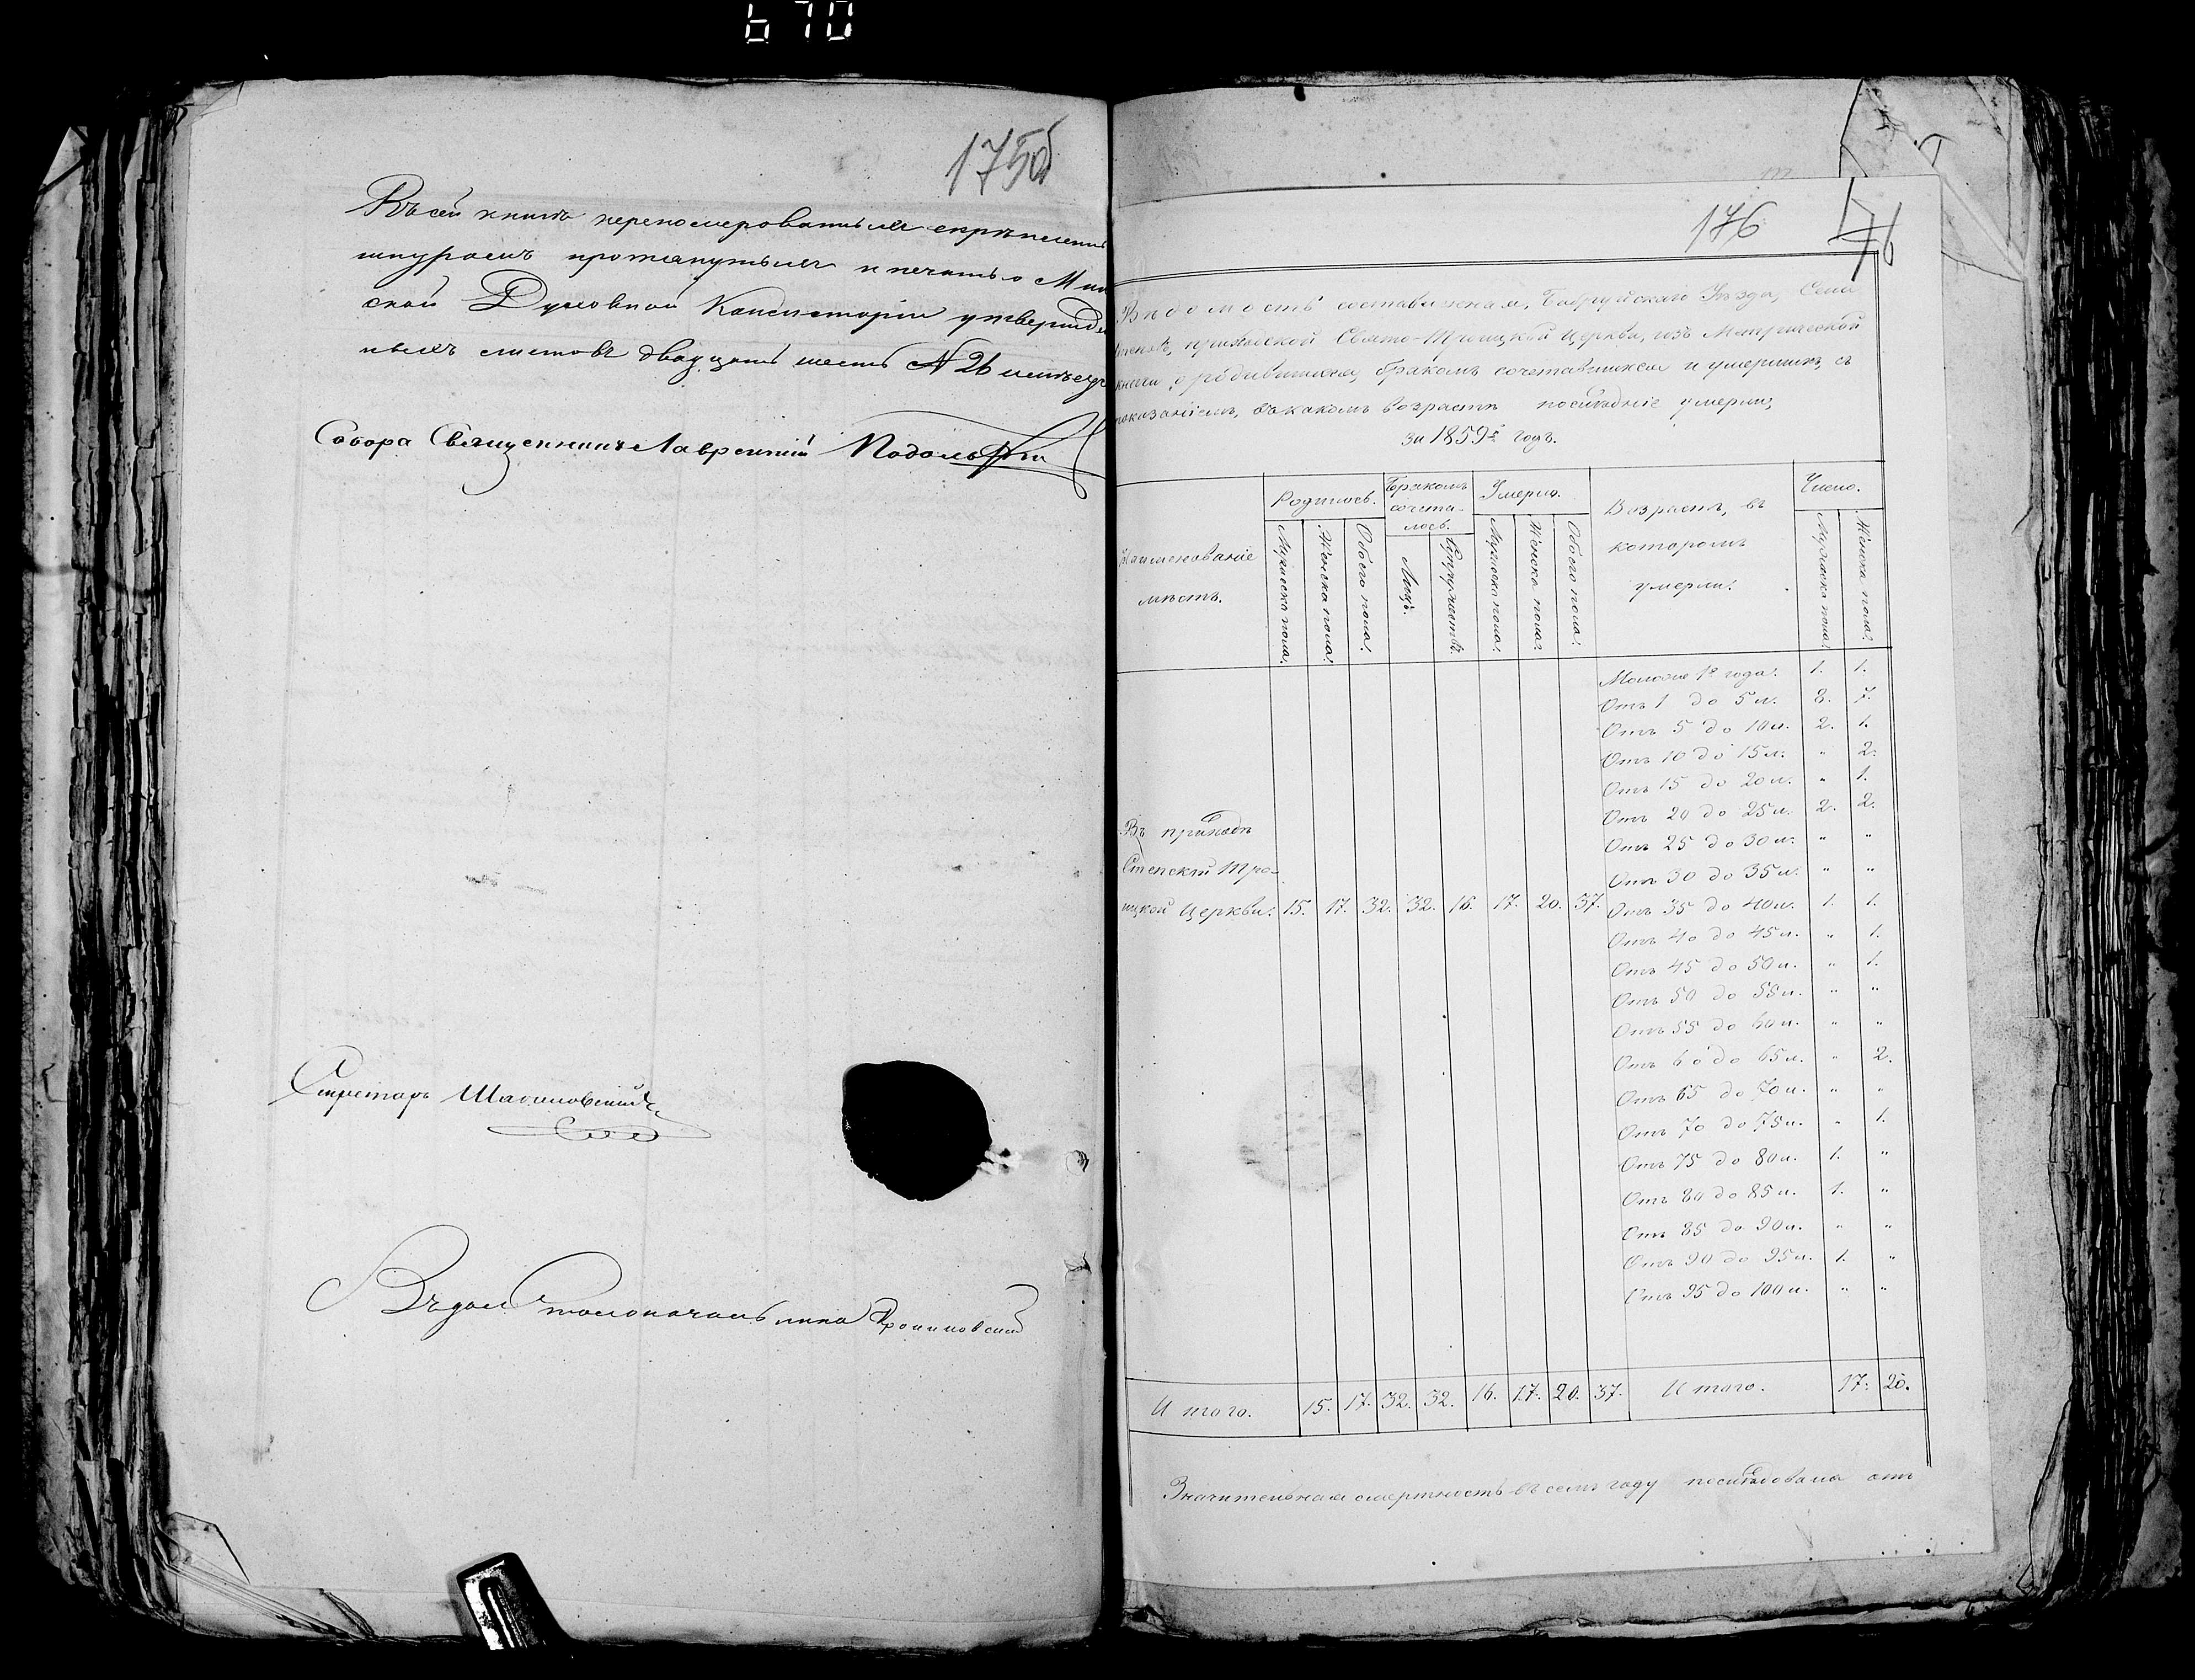 670
175об
Въ сей книге переномерованныхъ скрѣпленныхъ
шнуромъ протянутыхъ и печатью Мин
ской Духовной Консисторіи утвержден
ныхъ листовъ двадцать шесть № 26 имѣется
Собора Священникъ Лаврентій Подольскій
Секретарь
Столоначальника
176
176
Вѣдомость составленная, Бобруйскаго Уѣзда, Села
Степовъ, приходской Свято-Троицкой Церкви, изъ Метрической
книги, о родившихся, бракомъ сочетавшихся и умершихъ, съ
показаніемъ, въ какомъ возрастѣ послѣдніе умерли,
за 1859й годъ.
Наименованіе мѣстъ. Родилось. Бракомъ сочета-лось. Умерло. Возрастъ, въ которомъ умерли. Число.
Мужеска пола. Женска пола. Обоего пола. Лицъ. Супружествъ. Мужеска пола. Женска пола. Обоего пола. Мужеска пола. Женска пола.
Моложе 1го года. 1. 1.
Отъ 1 до 5 л. 8. 7.
Отъ 5 до 10 л. 2. 1.
Отъ 10 до 15 л. " 2.
Отъ 15 до 20 л. " 1.
Отъ 20 до 25 л. 2. 2.
Отъ 25 до 30 л. " "
Отъ 30 до 35 л. " "
Въ приходѣ
Степской Тро-
ицкой Церкви. 15. 17. 32. 32. 16. 17. 20. 37.
Отъ 35 до 40 л. 1. 1.
Отъ 40 до 45 л. " 1.
Отъ 45 до 50 л. " 1.
Отъ 50 до 55 л. " "
Отъ 55 до 60 л. " "
Отъ 60 до 65 л. " 2.
Отъ 65 до 70 л. " "
Отъ 70 до 75 л. " 1.
Отъ 75 до 80 л. 1. "
Отъ 80 до 85 л. 1. "
Отъ 85 до 90 л. " "
Отъ 90 до 95 л. 1. "
Отъ 95 до 100 л. " "
Итого. 15. 17. 32. 32. 16. 17. 20. 37. Итого. 17. 20.
Значительная смертность въ семъ году послѣдовала отъ